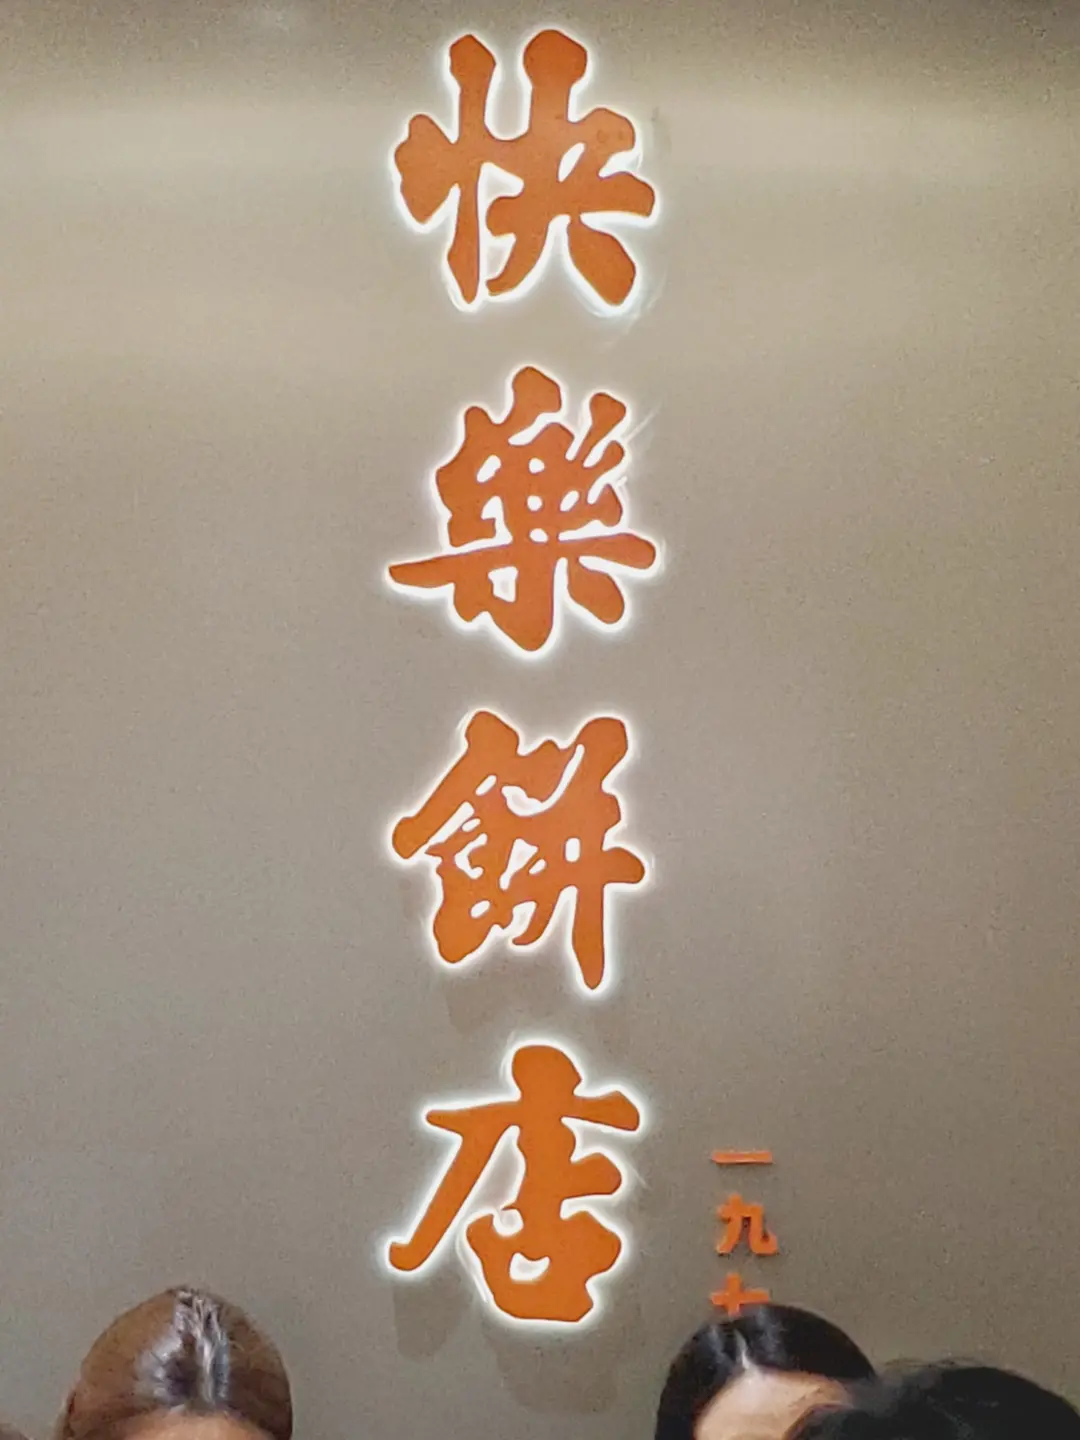 快樂餅店
一九